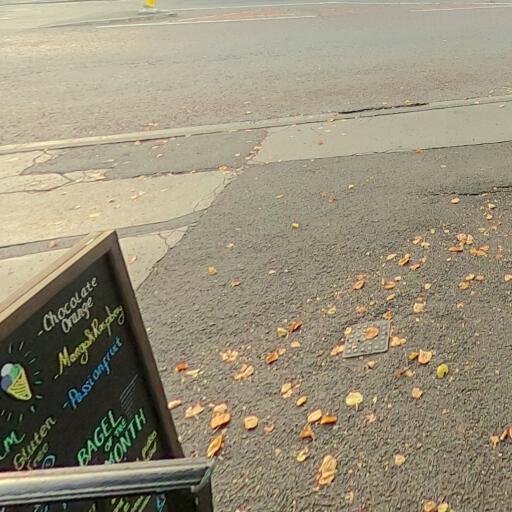 - Chocolate
Orange
- Mango & Raspberry
- Passionfruit
Gluten
Free
BAGEL
OF THE
MONTH